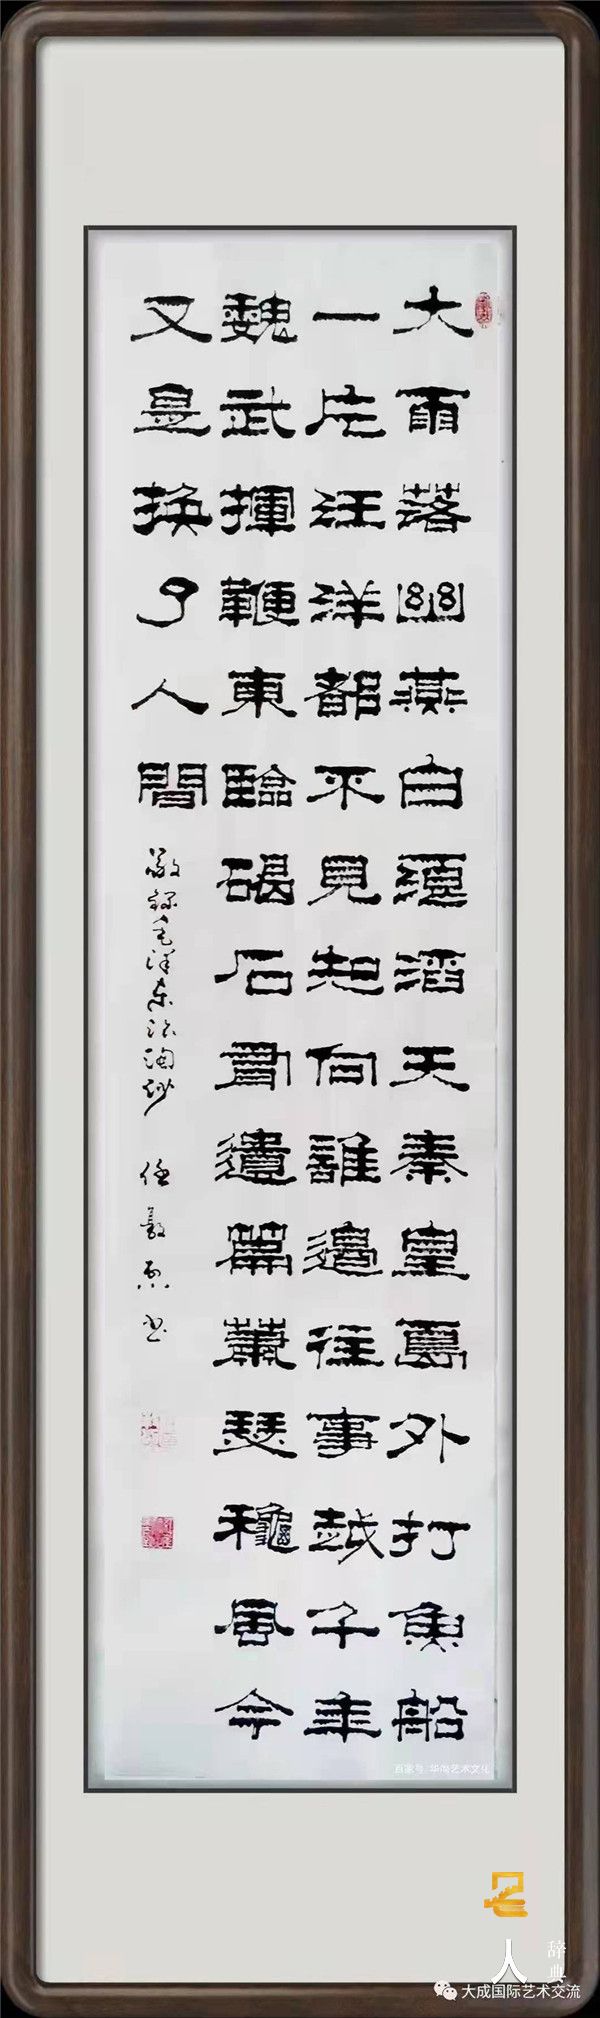 大雨落幽燕白浪滔天秦皇島外打魚船
一片汪洋都不見知向誰邊往事越千年
魏武揮鞭東臨碣石有遺篇蕭瑟穐風今
又是換了人間
敬錄毛泽东浪淘沙 书
百家号/华尚艺术文化
名人
辞典
大成国际艺术交流